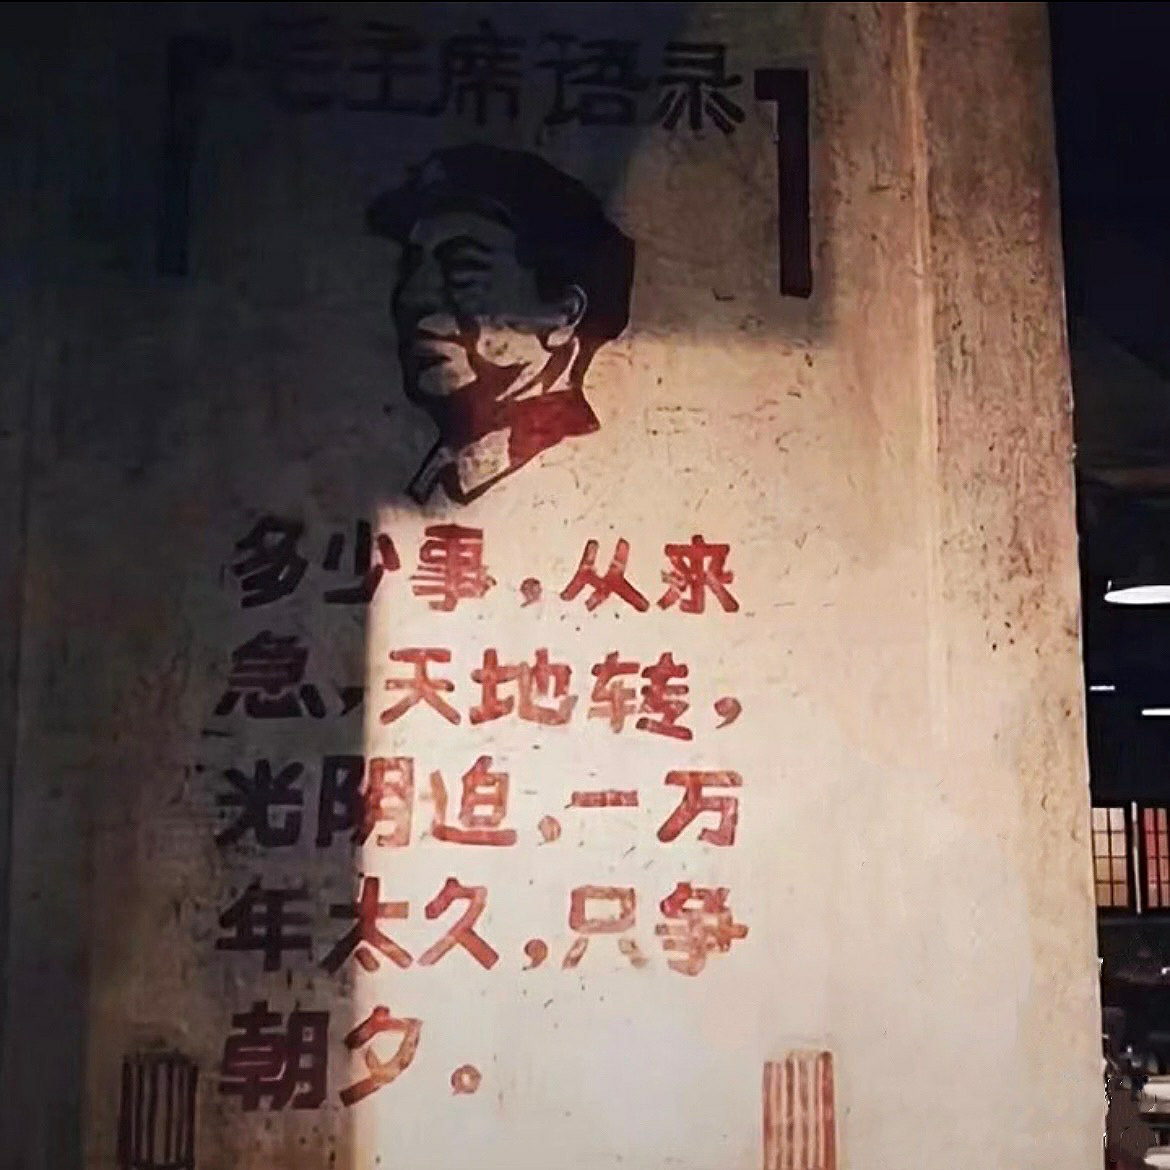 毛主席语录
多少事,从来
急,天地转,
光阴迫,一万
年太久,只争
朝夕。